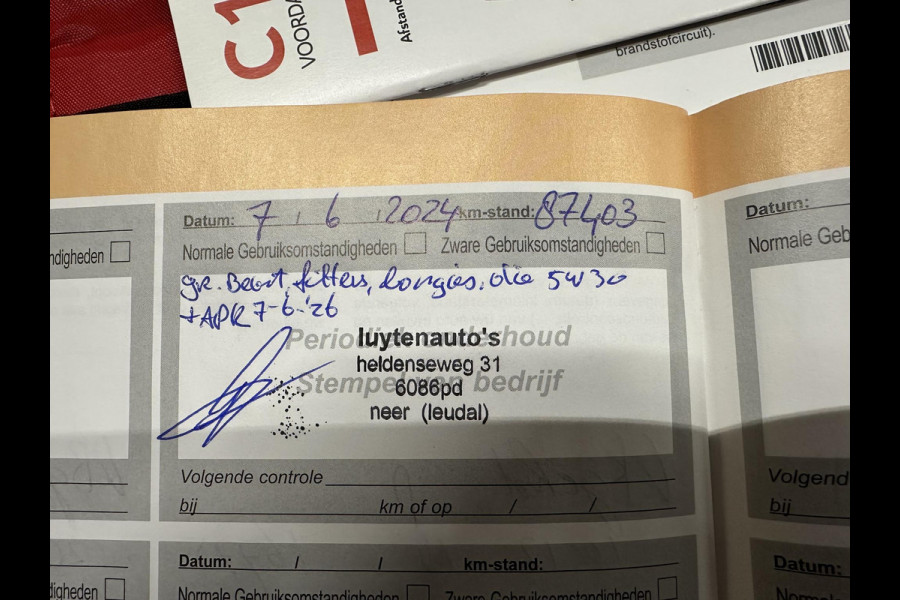 C1
VOORDA
Afstand
brandstofcircuit).
Datum: 7 / 6 / 2024 km-stand: 87403
Normale Gebruiksomstandigheden Zware Gebruiksomstandigheden
gr. Beurt, filters, bougies, olie 5W30
+ APK 7-6-'26
Periodiek onderhoud
luytenauto's
heldenseweg 31
Stempel van bedrijf
6086pd
neer (leudal)
Volgende controle
bij km of op / /
Datum: / / km-stand:
Normale Gebruiksomstandigheden Zware Gebruiksomstandigheden
ndigheden
digheden
Datum:
Normale Geb
Volgend
bij
Datum: